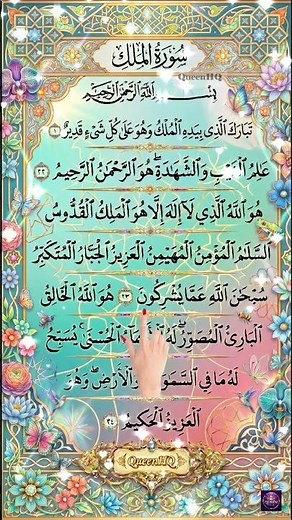 سُورَةُ المُلك
QueenHQ
بِسْمِ اللَّهِ الرَّحْمَٰنِ الرَّحِيمِ
تَبَارَكَ الَّذِي بِيَدِهِ الْمُلْكُ وَهُوَ عَلَىٰ كُلِّ شَيْءٍ قَدِيرٌ ١
عَلِمُ الْغَيْبِ وَالشَّهَٰدَةِ هُوَ الرَّحْمَٰنُ الرَّحِيمُ ٢٢
هُوَ اللَّهُ الَّذِي لَآ إِلَٰهَ إِلَّا هُوَ الْمَلِكُ الْقُدُّوسُ
السَّلَٰمُ الْمُؤْمِنُ الْمُهَيْمِنُ الْعَزِيزُ الْجَبَّارُ الْمُتَكَبِّرُ
سُبْحَٰنَ اللَّهِ عَمَّا يُشْرِكُونَ ٢٣ هُوَ اللَّهُ الْخَالِقُ
الْبَارِئُ الْمُصَوِّرُ لَهُ الْحُسْنَىٰ يُسَبِّحُ
لَهُ مَا فِي السَّمَٰوَٰتِ وَالْأَرْضِ وَهُوَ
الْعَزِيزُ الْحَكِيمُ ٢٤
QueenHQ